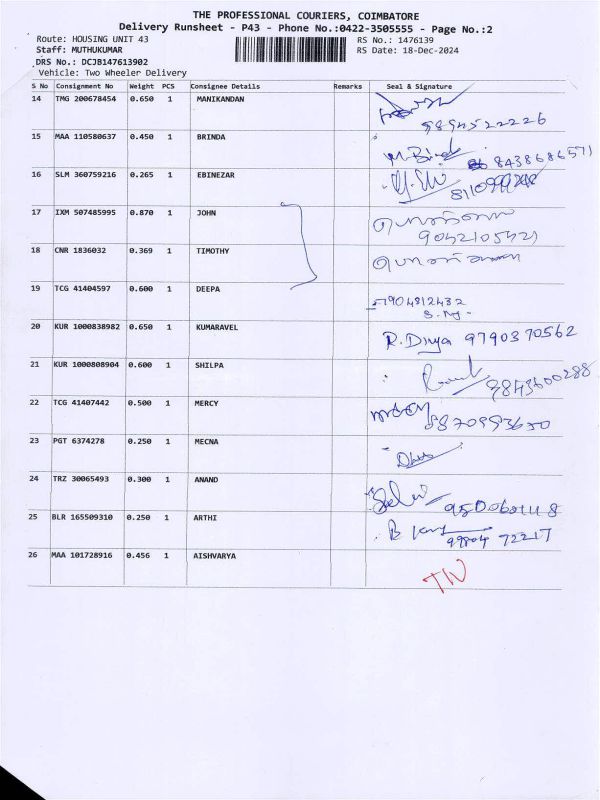 THE PROFESSIONAL COURIERS, COIMBATORE
Delivery Runsheet - P43 - Phone No.:0422-3505555 - Page No.:2
Route: HOUSING UNIT 43 RS No.: 1476139
Staff: MUTHUKUMAR RS Date: 18-Dec-2024
DRS No.: DCJB147613902
Vehicle: Two Wheeler Delivery
S No Consignment No Weight PCS Consignee Details Remarks Seal & Signature
14 TMG 200678454 0.650 1 MANIKANDAN
9894522226
15 MAA 110580637 0.450 1 BRINDA
8438686571
16 SLM 360759216 0.265 1 EBINEZAR
17 IXM 507485995 0.870 1 JOHN
9042105421
18 CNR 1836032 0.369 1 TIMOTHY
19 TCG 41404597 0.600 1 DEEPA
20 KUR 1000838982 0.650 1 KUMARAVEL
R. Divya 9790370562
21 KUR 1000808904 0.600 1 SHILPA
9843600288
22 TCG 41407442 0.500 1 MERCY
23 PGT 6374278 0.250 1 MECNA
24 TRZ 30065493 0.300 1 ANAND
25 BLR 165509310 0.250 1 ARTHI
26 MAA 101728916 0.456 1 AISHVARYA